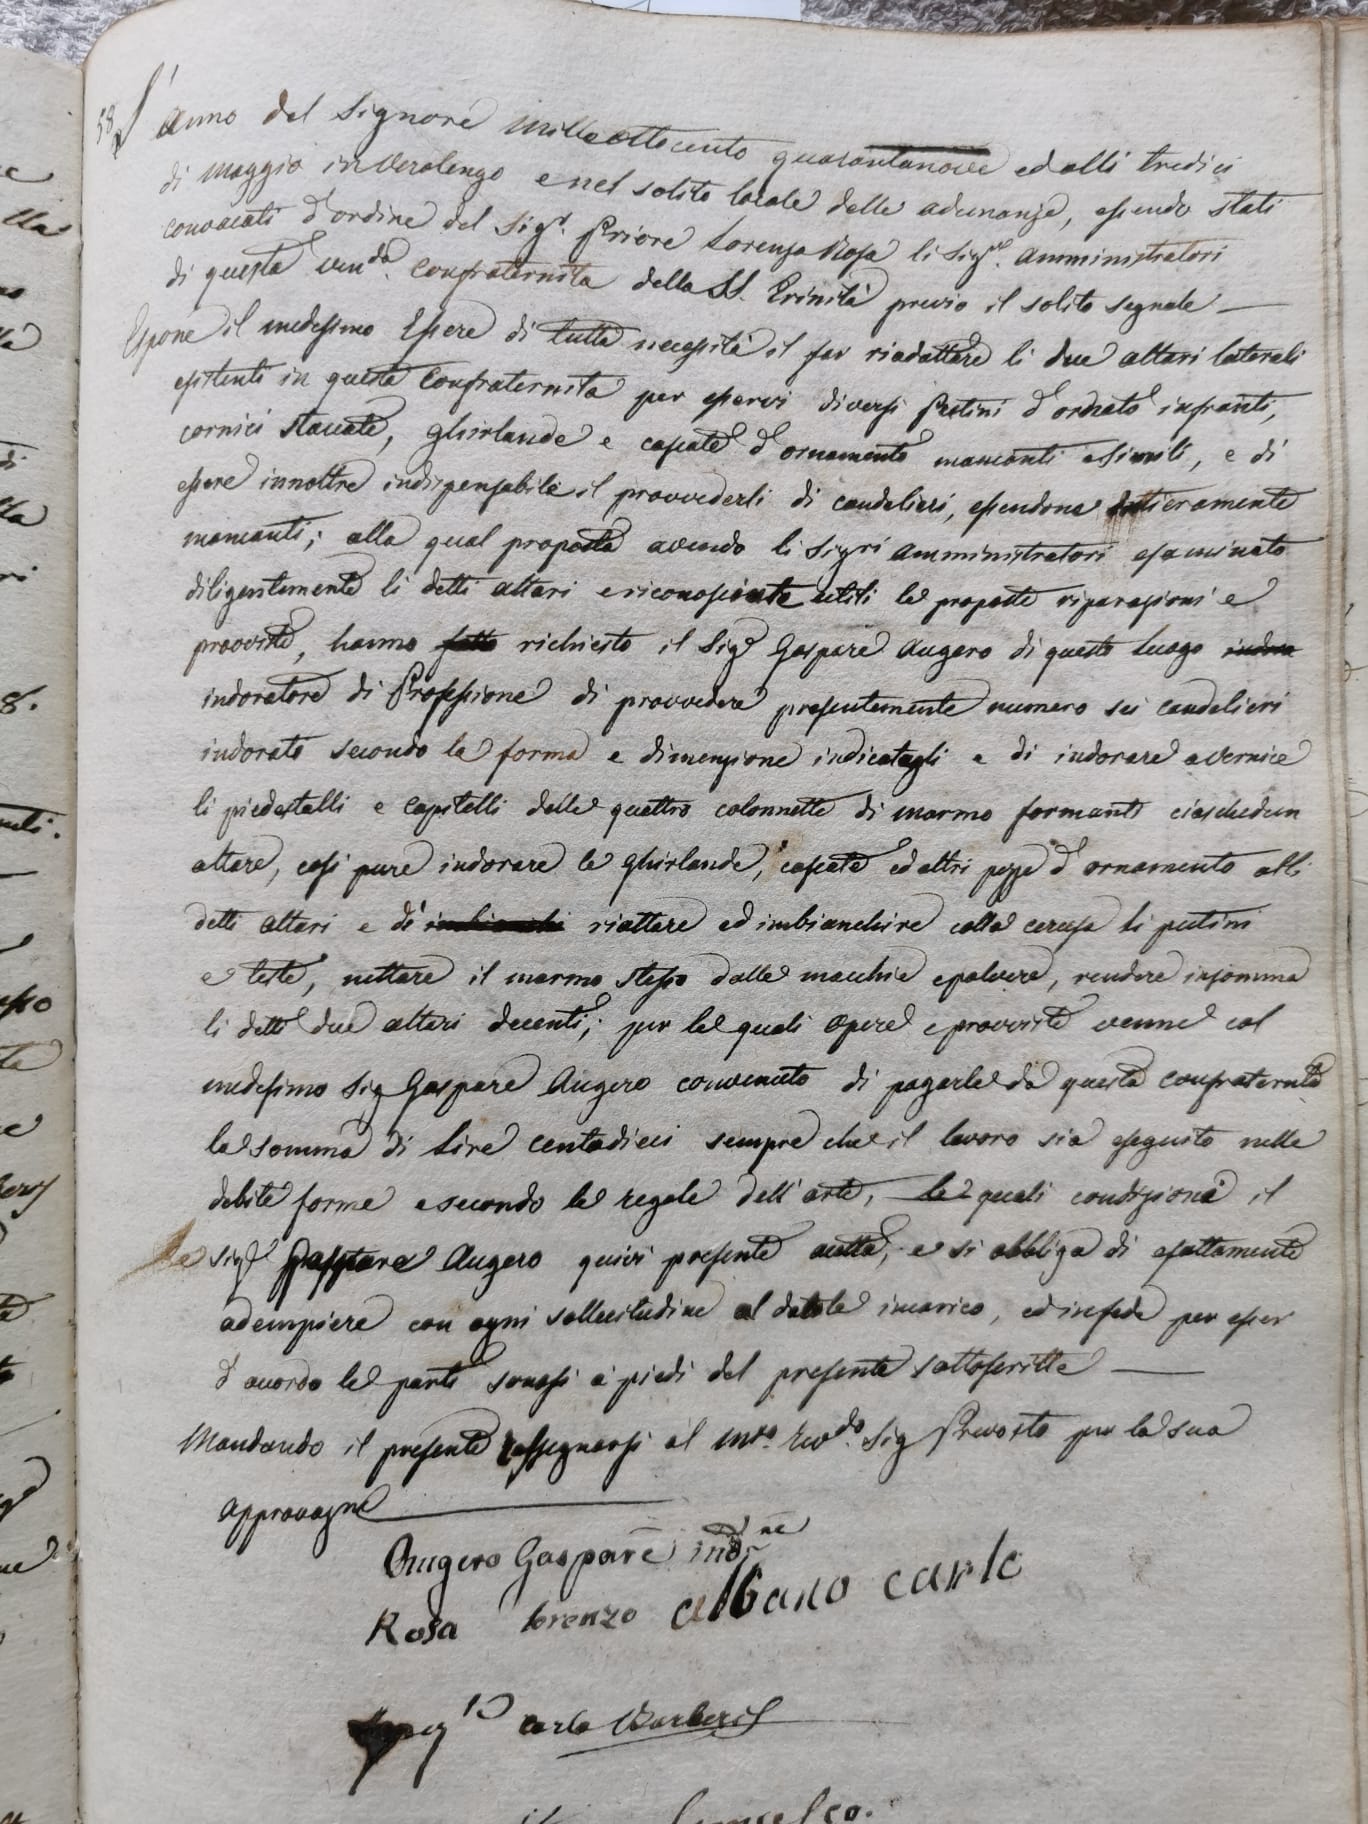 58
L'anno del Signore mille ottocento quarantanove ed alli tredici
di Maggio in Verolengo e nel solito locale delle adunanze, essendo stati
convocati d'ordine del Sig.r Priore Lorenzo Rosa li Sig.ri Amministratori
di questa ven.da Confraternita della SS. Trinità previo il solito segnale —
Espone il medesimo Essere di tutta necessità il far riadattare li due altari laterali
esistenti in questa Confraternita per esservi diversi Putini d'ordnato infranti,
cornici staccate, ghirlande e cascate d'ornamento mancanti e simili, e di
essere innoltre indispensabile il provvederli di candelieri, essendone intieramente
mancanti; alla qual proposta avendo li Sigri Amministratori esaminato
diligentemente li detti altari e riconosciute utili le proposte riparazioni e
provviste, hanno fatto richiesto il Sig.r Gaspare Augero di questo luogo indora
indoratore di Professione di provvedere presentemente numero sei candelieri
indorati secondo la forma e dimenzione indicatagli e di indorare a vernice
li piedestalli e capitelli delle quattro colonnette di marmo formanti ciaschedun
altare, così pure indorare le ghirlande, cascate ed altri pezze d'ornamento alli
detti altari e di imbianchi riattare ed imbianchire colla cerusa li putini
e teste, nettare il marmo stesso dalle macchie e polvere, rendere insomma
li detti due altari decenti; per le quali opere e provviste venne col
medesimo Sig Gaspare Augero convenuto di pagarle da questa Confraternita
la somma di Lire centodieci sempre che il lavoro sia eseguito nelle
debite forme e secondo le regole dell'arte, le quali condizioni il
Sig.r Gaspare Augero quivi presente accetta, e si obbliga di esattamente
adempiere con ogni sollecitudine al datole incarico, ed in fede per esser
d'accordo le parti sonosi a piedi del presente sottoscritte —
Mandando il presente rassegnarsi al M.to Rev.do Sig Prevosto per la sua
approvazne
Augero Gaspare ind.ne
Rosa Lorenzo albano carlo
carlo Barberis